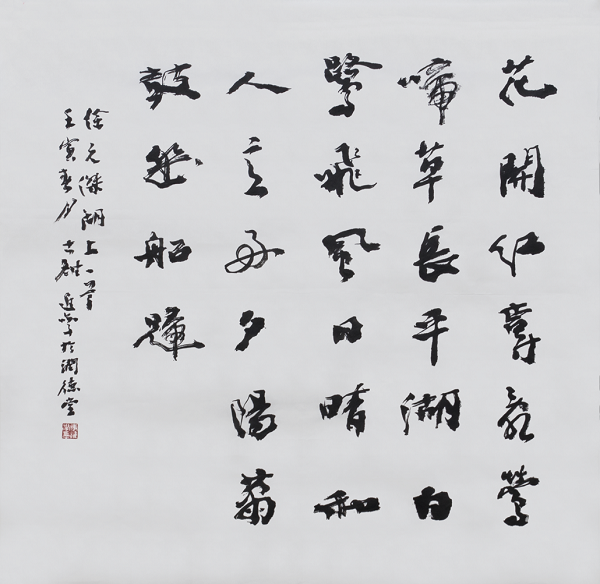 花開紅樹亂鶯
啼草長平湖白
鷺飛風日晴和
人意好夕陽簫
鼓幾船歸
徐元傑湖上一首
壬寅春月士於潤德堂